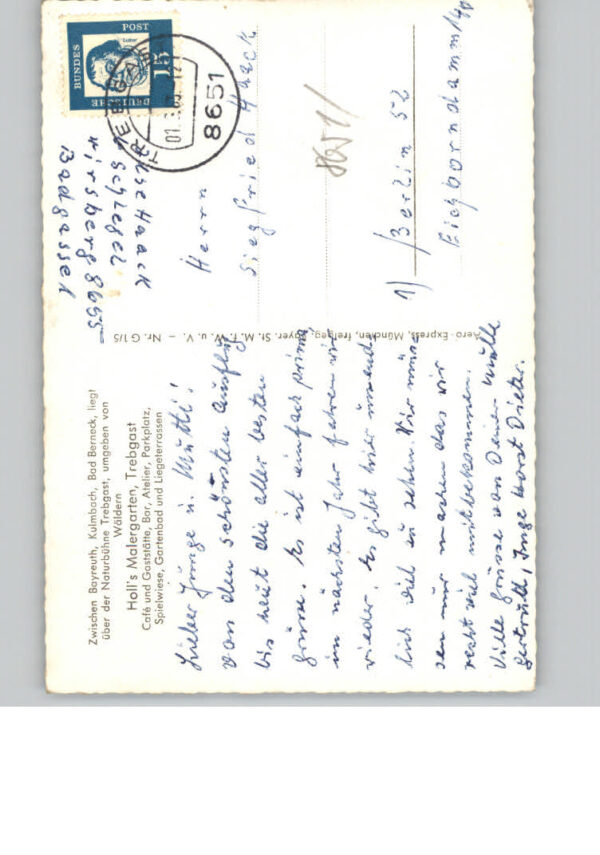 Zwischen Bayreuth, Kulmbach, Bad Berneck, liegt
über der Naturbühne Trebgast, umgeben von
Wäldern
Holl's Malergarten, Trebgast
Café und Gaststätte, Bar, Atelier, Parkplatz,
Spielwiese, Gartenbad und Liegeterrassen
Lieber Junge u. Mutti!
Von den schönsten Ausflug
bis heut die aller besten
Grüsse. Es ist einfach prima
im nächsten Jahr fahren wir
wieder. Es gibt hier
viel zu sehen. Wir müs
sen nur machen das wir
recht viel mitbekommen.
Viele Grüsse von Deiner Mutti
Gertrud, Inge Horst Dieter.
Aero-Express, München, freigeg. Bayer. St. M. f. W. u. V. – Nr. G 1/5
Ilse Haack
Schlegel
Wirsberg 8655
Badgasse 1
DEUTSCHE
BUNDES
POST
15
Luther
TREBGAST
8651
Herrn
Siegfried Haack
8651/
1) Berlin 52
Eichborndamm 140